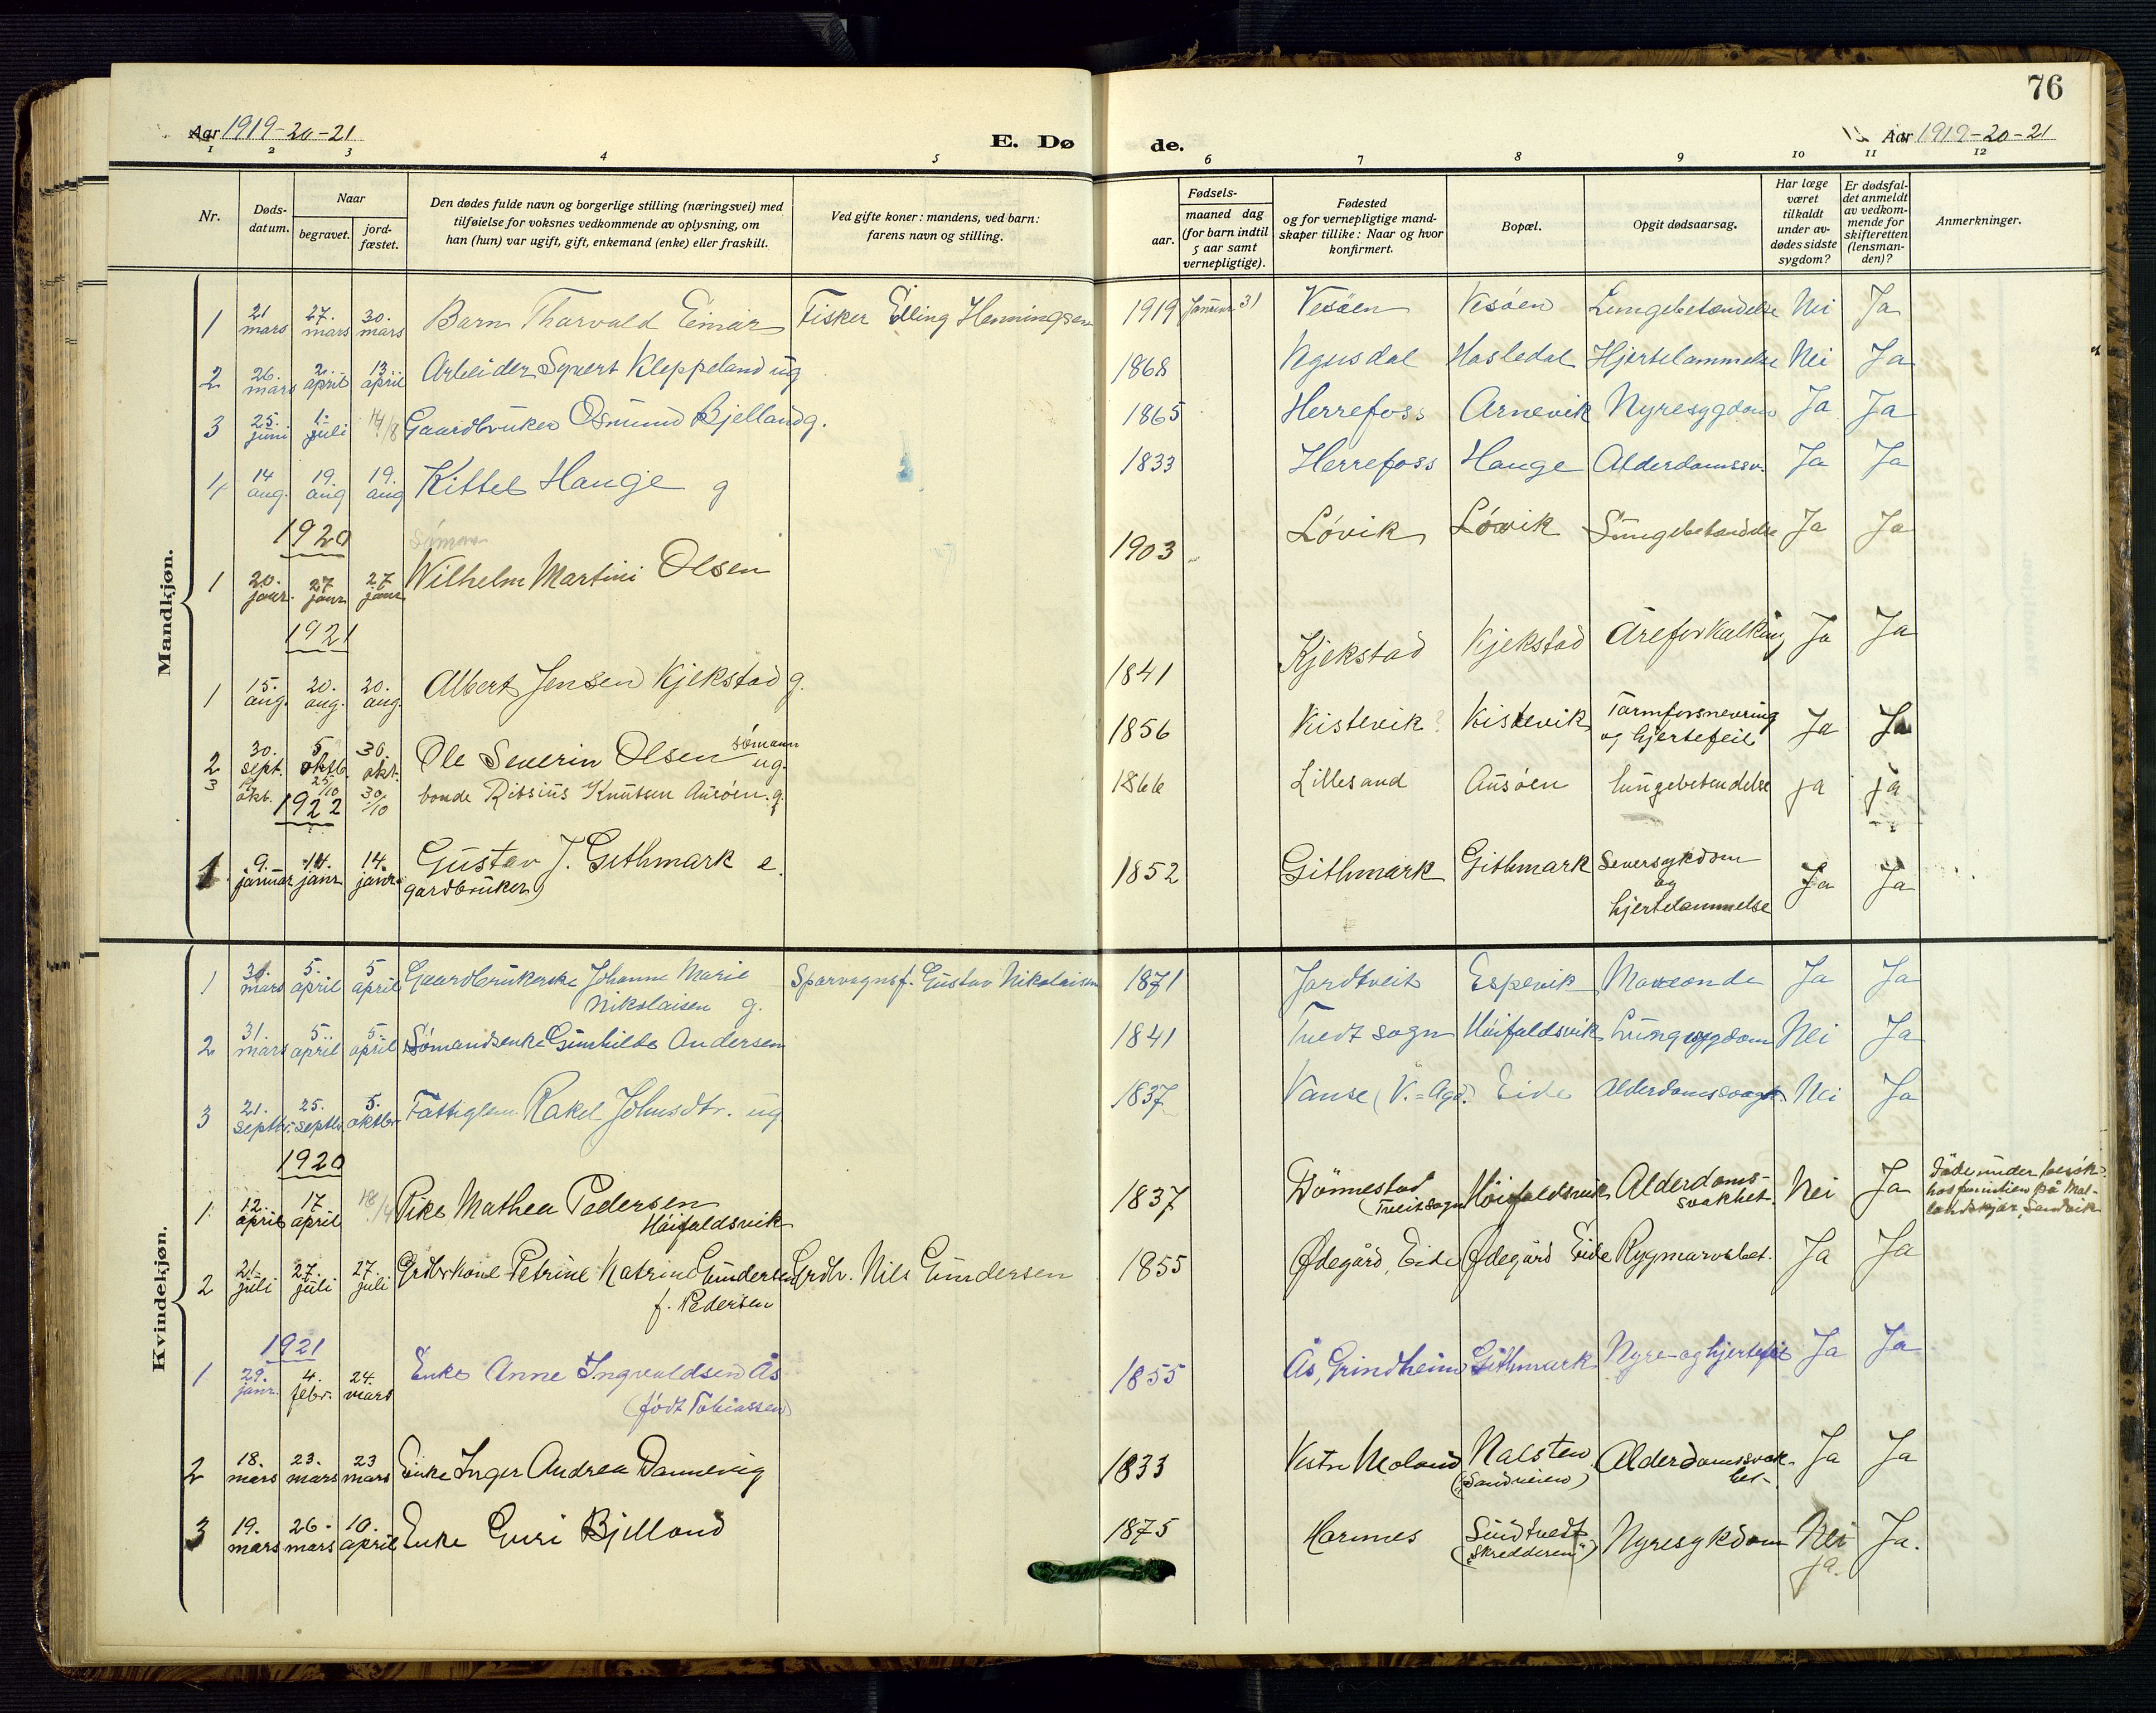 76
Aar 1919-20-21
E. Dø
de.
Aar 1919-20-21
1 2 3 4 5 6 7 8 9 10 11 12
Nr.
Døds-
datum.
Naar
begravet.
jord-
fæstet.
Den dødes fulde navn og borgerlige stilling (næringsvei) med
tilføielse for voksnes vedkommende av oplysning, om
han (hun) var ugift, gift, enkemand (enke) eller fraskilt.
Ved gifte koner: mandens, ved barn:
farens navn og stilling.
Fødsels-
aar.
maaned dag
(for barn indtil
5 aar samt
vernepligtige).
Fødested
og for vernepligtige mand-
skaper tillike: Naar og hvor
konfirmert.
Bopæl.
Opgit dødsaarsag.
Har læge
været
tilkaldt
under av-
dødes sidste
sygdom?
Er dødsfal-
det anmeldt
av vedkom-
mende for
skifteretten
(lensman-
den)?
Anmerkninger.
Mandkjøn.
1 21 mars 27. mars 30. mars Barn Tharvald Einar Fisker Elling Henningsen 1919 Januar 31 Vesöen Vesöen Lungebetændelse Nei Ja
2 26. mars 2. april 13 april Arbeider Syvert Kleppeland ug 1868 Vegusdal Hasledal Hjertelammelse Nei Ja
3 25. juni 1. juli 14/8 Gaardbruker Osmund Bjelland g. 1865 Herrefoss Arnevik Nyresygdom Ja Ja
4 14 aug. 19. aug 19. aug Kittel Hauge g 1833 Herrefoss Hauge Alderdomssv. Ja Ja
1920
Sömann
1 20. janr. 27 janr 27 janr Wilhelm Martini Olsen 1903 Lóvik Lóvik Lungebetændelse Ja Ja
1921
1 15. aug. 20. aug. 20. aug. Albert Jensen Kjekstad g. 1841 Kjekstad Kjekstad Åreforkalking Ja Ja
2 30. sept. 5 oktb. 30. okt. Ole Severin Olsen sömann ug. 1856 Kistevik? Kistevik Tarmforsnevring
og hjertefeil Ja Ja
3 okt. 25/10 30/10 bonde Ritsius Knutsen Ausóen. g. 1866 Lillesand Ausöen lungebetendelse ja ja
1922
1 9. januar 14. janr 14. janr. Gustav J. Githmark e.
gardbruker 1852 Githmark Githmark Leversykdom
og
hjertelammelse Ja Ja
Kvindekjøn.
1 mars 5. april 5 april Gaardbrukerske Johanne Marie
Nikolaisen g. Sporvognsf. Gustav Nikolaisen 1871 Jordtveit Espevik Ja Ja
2 31. mars 5. april 5. april Sömandsenke Gunhilde Andersen 1841 Tvedt sogn Höifaldsvik Lungesygdom Nei Ja
3 21. septbr. 25. septbr. 5. oktbr Fattiglem Rakel Johnsdtr. ug 1837 Vanse (V.=Agd.) Eide Alderdomssvagh. Nei Ja
1920
1 12. april 17 april 18/4 Pike Mathea Pedersen
Höifaldsvik 1837 Dönnestad
(Tveit sogn Höifaldsvik Alderdoms-
svakhet. Nei Ja Döde under besök
hos familien på Mal-
landskjær, Sandvik
2 21. juli 27. juli 27. juli Grdbr.kone Petrine Katrine Gundersen
f. Pedersen Grdbr. Nils Gundersen 1855 Ødegård, Eide Ødegård Eide Rygmarvsbet. Ja Ja
1921
1 29. janr. 4. febr. 24. mars Enke Anne Ingvaldsen Ås
(född Tobiassen) 1855 Ås, Grindheim Githmark Nyre- og hjertefeil Ja Ja
2 18. mars 23. mars 23 mars Enke Inger Andrea Dannevig 1833 Vestre Moland Kalsten
("Sandveien") Alderdomssvak-
het- Ja Ja
3 19. mars 26. mars 10. april Enke Guri Bjelland 1875 Hornnes Sundtvedt
("Skredderen") Nyresykdom Nei Ja.
ja.